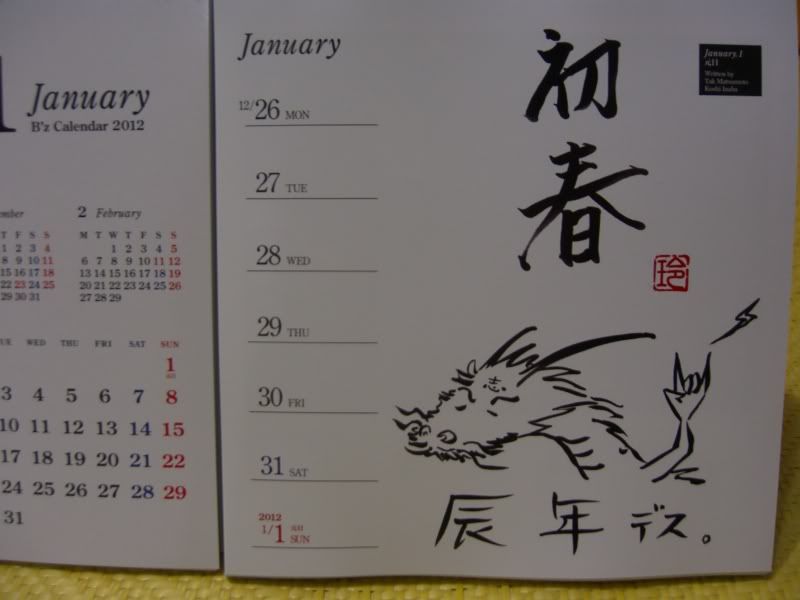 January
B'z Calendar 2012
2 February
T F S S M T W T F S S
1 2 3 4 1 2 3 4 5
8 9 10 11 6 7 8 9 10 11 12
15 16 17 18 13 14 15 16 17 18 19
22 23 24 25 20 21 22 23 24 25 26
29 30 31 27 28 29
WED THU FRI SAT SUN
1
3 4 5 6 7 8
10 11 12 13 14 15
17 18 19 20 21 22
24 25 26 27 28 29
31
January
12/26 MON
27 TUE
28 WED
29 THU
30 FRI
31 SAT
2012
1/1 元日 SUN
初春
玲
January.1
元日
Written by
Tak Matsumoto
Koshi Inaba
辰年デス。